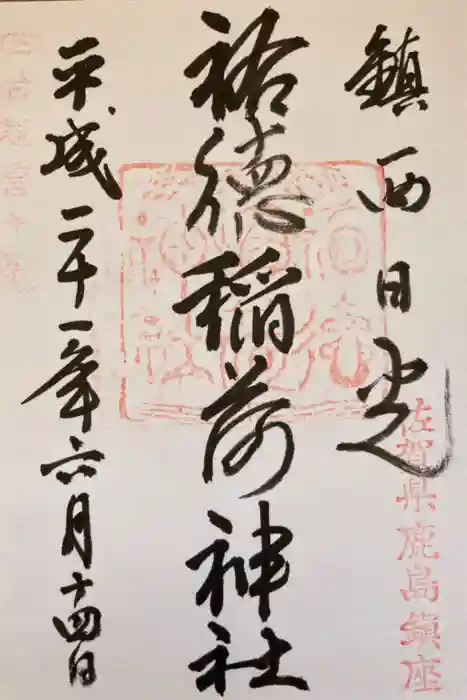 鎮西日光
佐賀県鹿島鎮座
祐徳稲荷神社
平成二十一年六月十四日